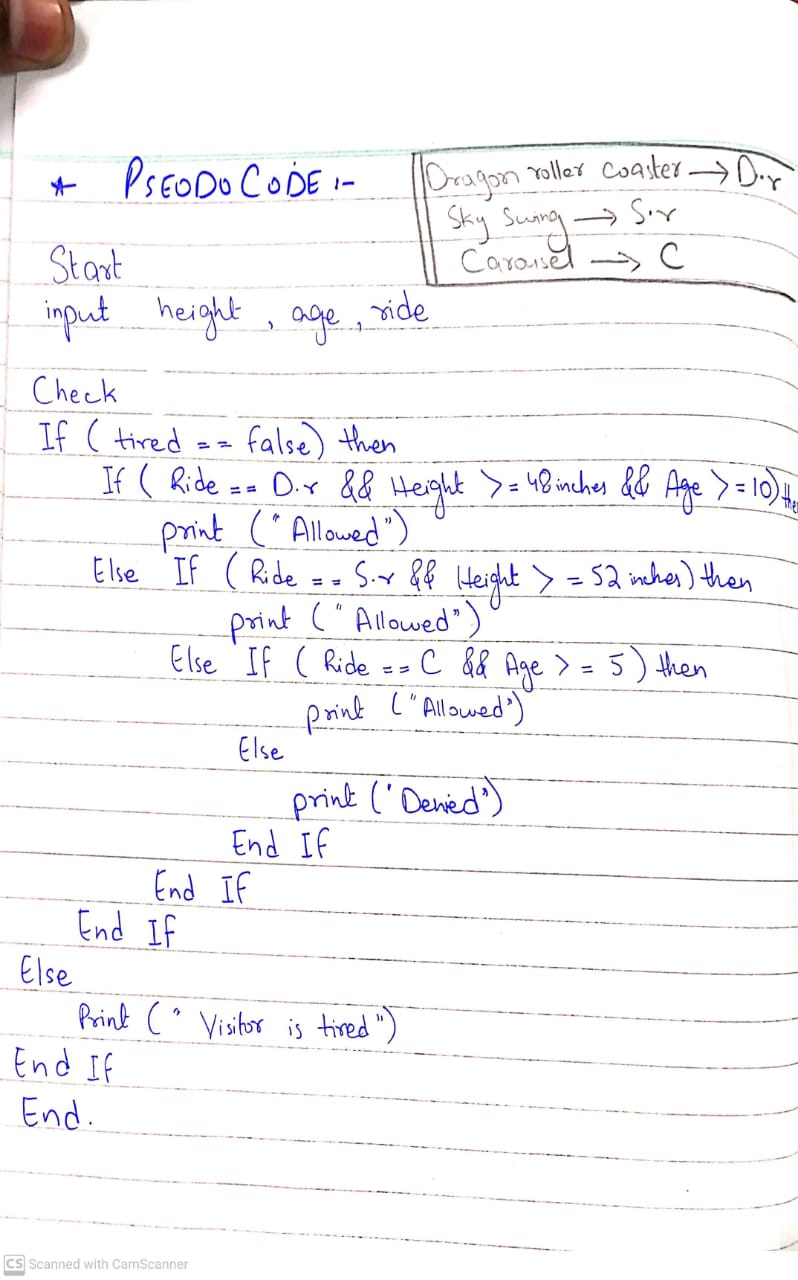 * PSEODO CODE :-
Dragon roller coaster → D.r
Sky Swing → S.r
Carousel → C
Start
input height , age , ride
Check
If ( tired == false) then
If ( Ride == D.r && Height >= 48 inches && Age >= 10) then
print (" Allowed")
Else If ( Ride == S.r && Height >= 52 inches) then
print (" Allowed")
Else If ( Ride == C && Age >= 5 ) then
print (" Allowed")
Else
print (' Denied")
End If
End If
End If
Else
Print (" Visitor is tired ")
End If
End.
CS Scanned with CamScanner